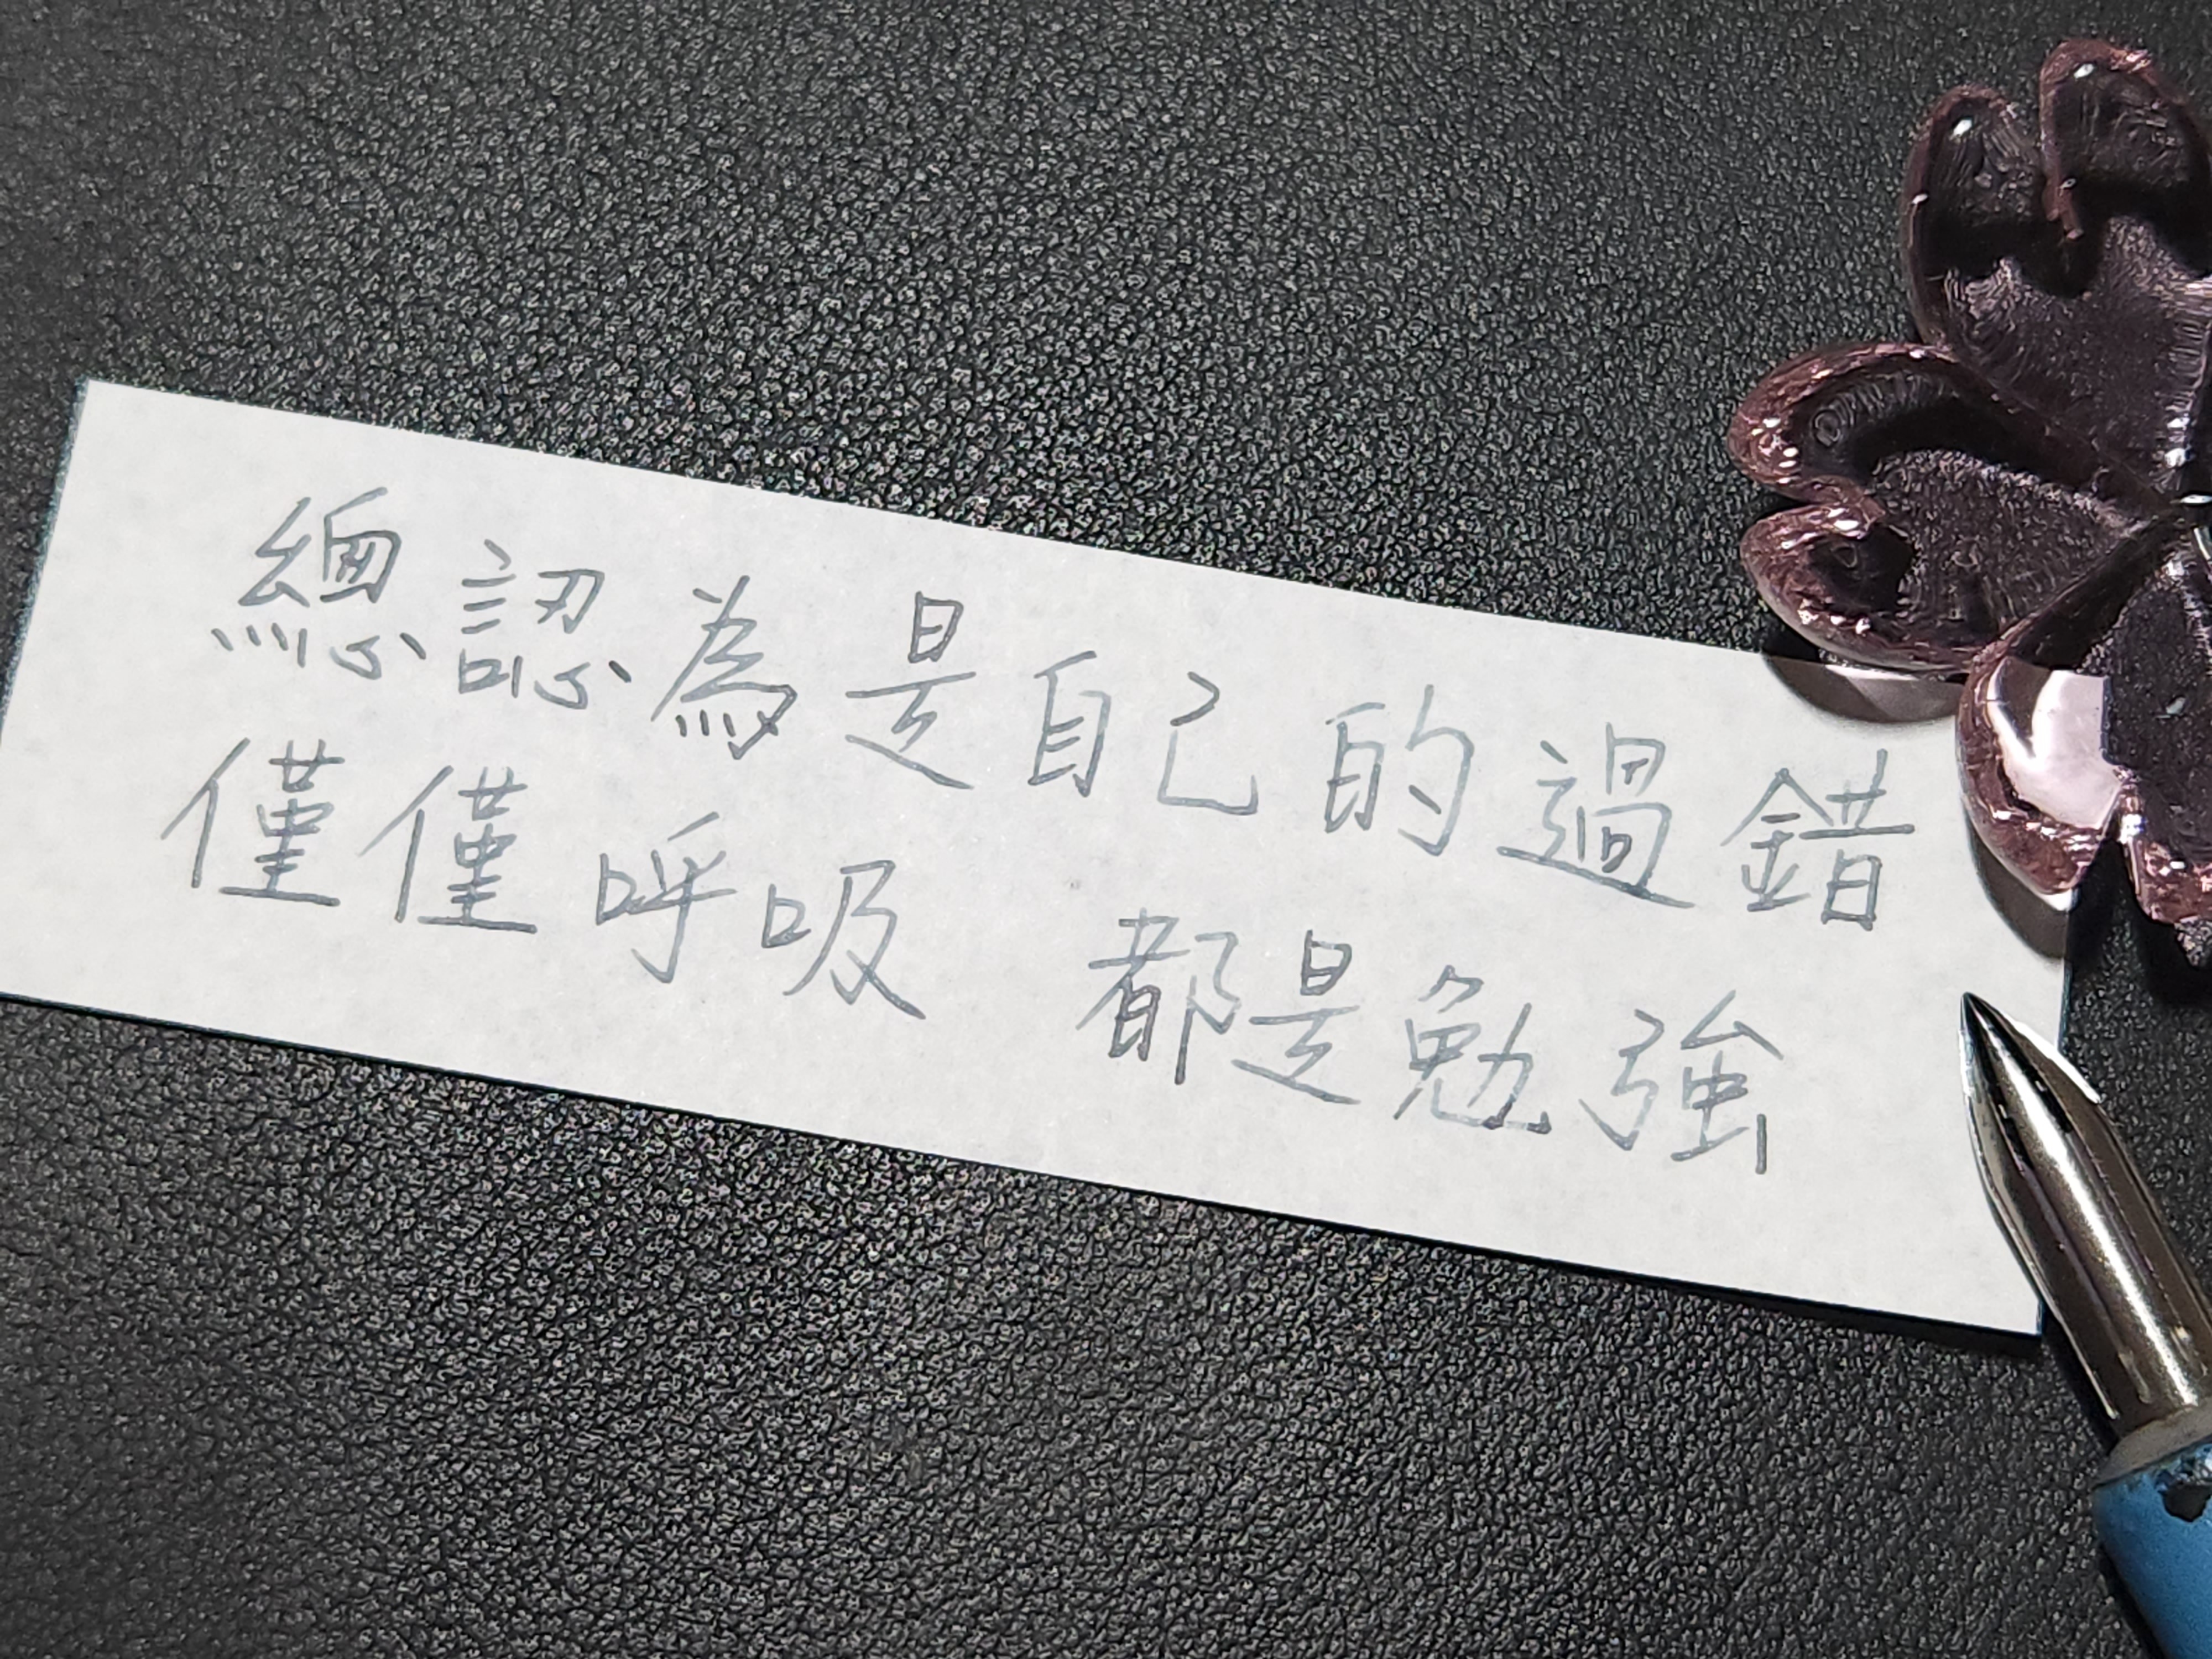 總認為是自己的過錯
僅僅呼吸 都是勉強